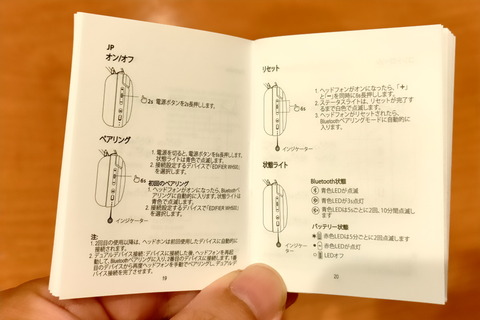 JP
オン/オフ
2s 電源ボタンを2s長押しします。
ペアリング
6s
インジケーター
1. 電源を切ると、電源ボタンを6s長押しします。
状態ライトは青色で点滅します。
2. 接続設定するデバイスで「EDIFIER W65E」
を選択します。
初回のペアリング
1. ヘッドフォンがオンになったら、Bluetoothペ
アリングに自動的に入ります。状態ライトは
青色で点滅します。
2. 接続設定するデバイスで「EDIFIER W65E」
を選択します。
注:
1. 2回目の使用以降は、ヘッドホンは前回使用したデバイスに自動的に
接続されます。
2. デュアルデバイス接続: デバイスに接続した後、ヘッドフォンを再起
動して、Bluetoothペアリングに入り、2番目のデバイスに接続します。1番
目のデバイスから再度ヘッドフォンを手動でペアリングし、デュアルデ
バイス接続を完了させます。
19
リセット
6s
インジケーター
1. ヘッドフォンがオンになったら、「+」
と「−」を同時に6s長押しします。
2. ステータスライトは、リセットが完了す
るまで白色で点滅します。
3. ヘッドフォンがリセットされたら、
Bluetoothペアリングモードに自動的に
入ります。
状態ライト
インジケー
ター
Bluetooth状態
青色LEDが点滅
青色LEDが3s点灯
青色LEDは5sごとに2回、10分間点滅
します
バッテリー状態
赤色LEDは5分ごとに2回点滅します
赤色LEDが点灯
LEDオフ
20